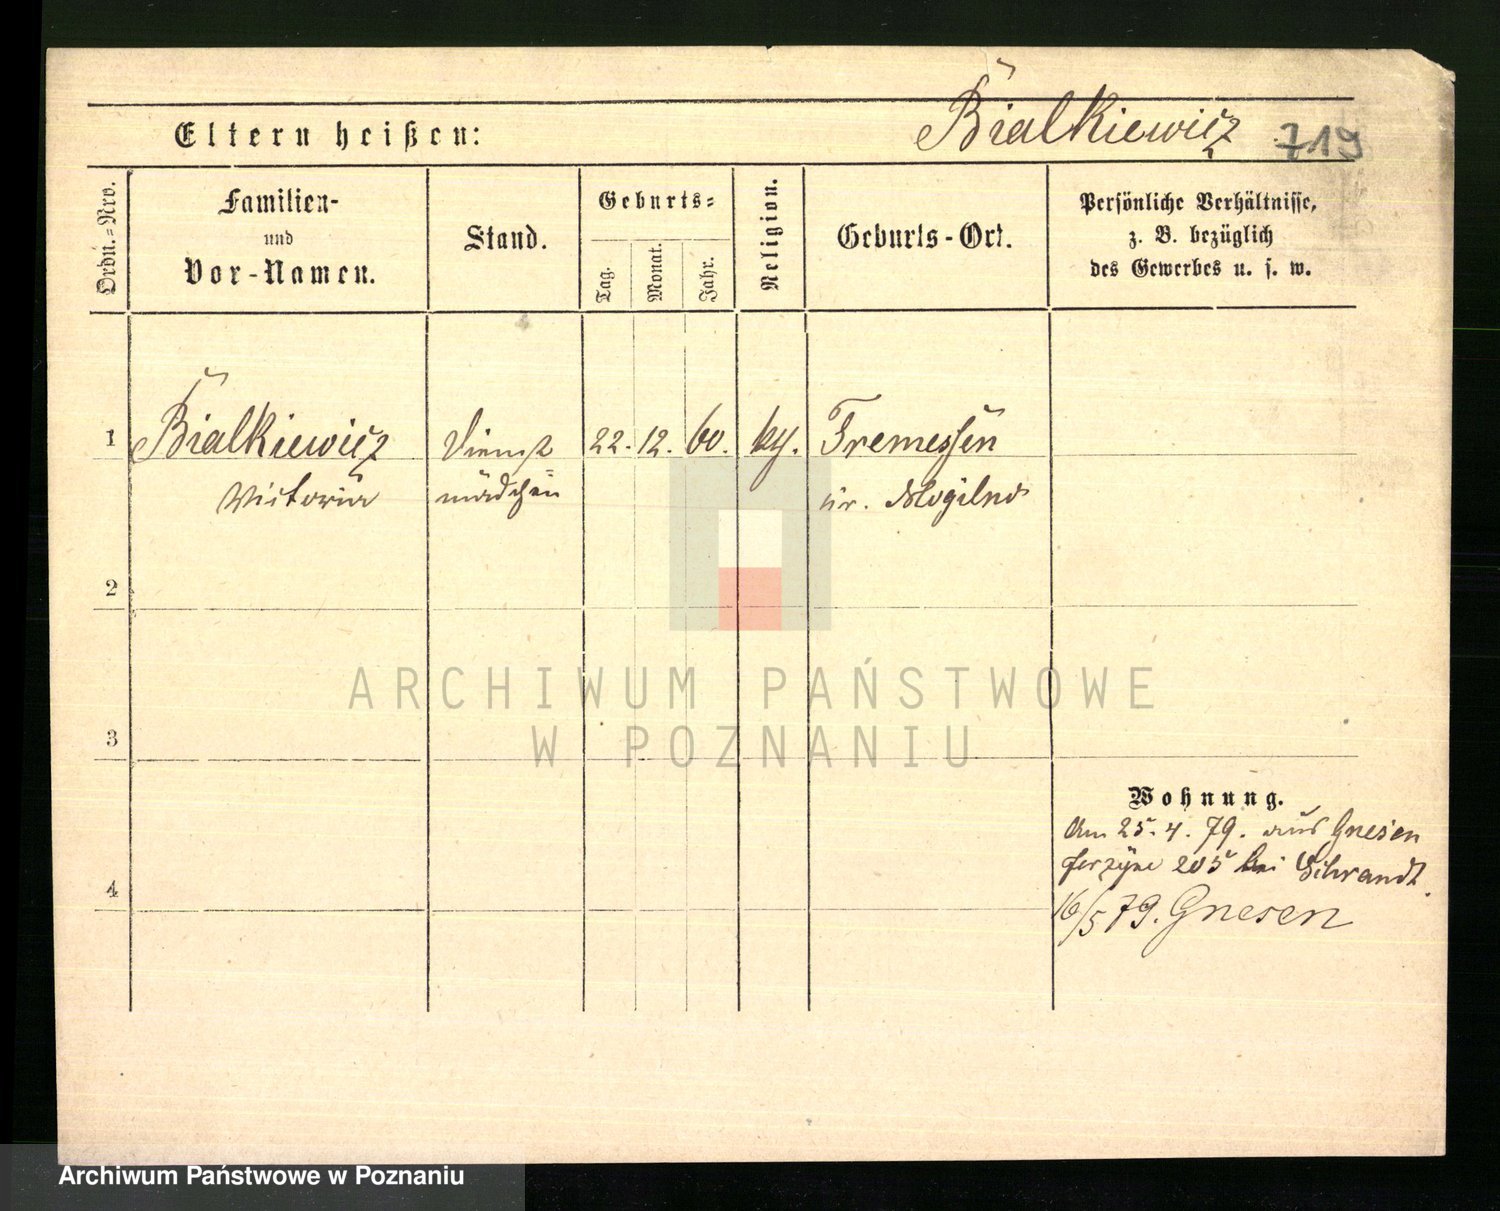 Bialkiewicz 719
Eltern heißen:
Ordn.=Nro.
Familien-
und
Vor-Namen.
Stand.
Geburts=
Tag.
Monat.
Jahr.
Religion.
Geburts-Ort.
Persönliche Verhältnisse,
z. B. bezüglich
des Gewerbes u. s. w.
1 Bialkiewicz Dienst 22. 12. 60. Tremessen
Victoria mädchen Mogilno
2
ARCHIWUM PAŃSTWOWE
W POZNANIU
3
Wohnung.
Am 25. 4. 79. aus Gnesen
205 bei
4
16/5 79. Gnesen
Archiwum Państwowe w Poznaniu